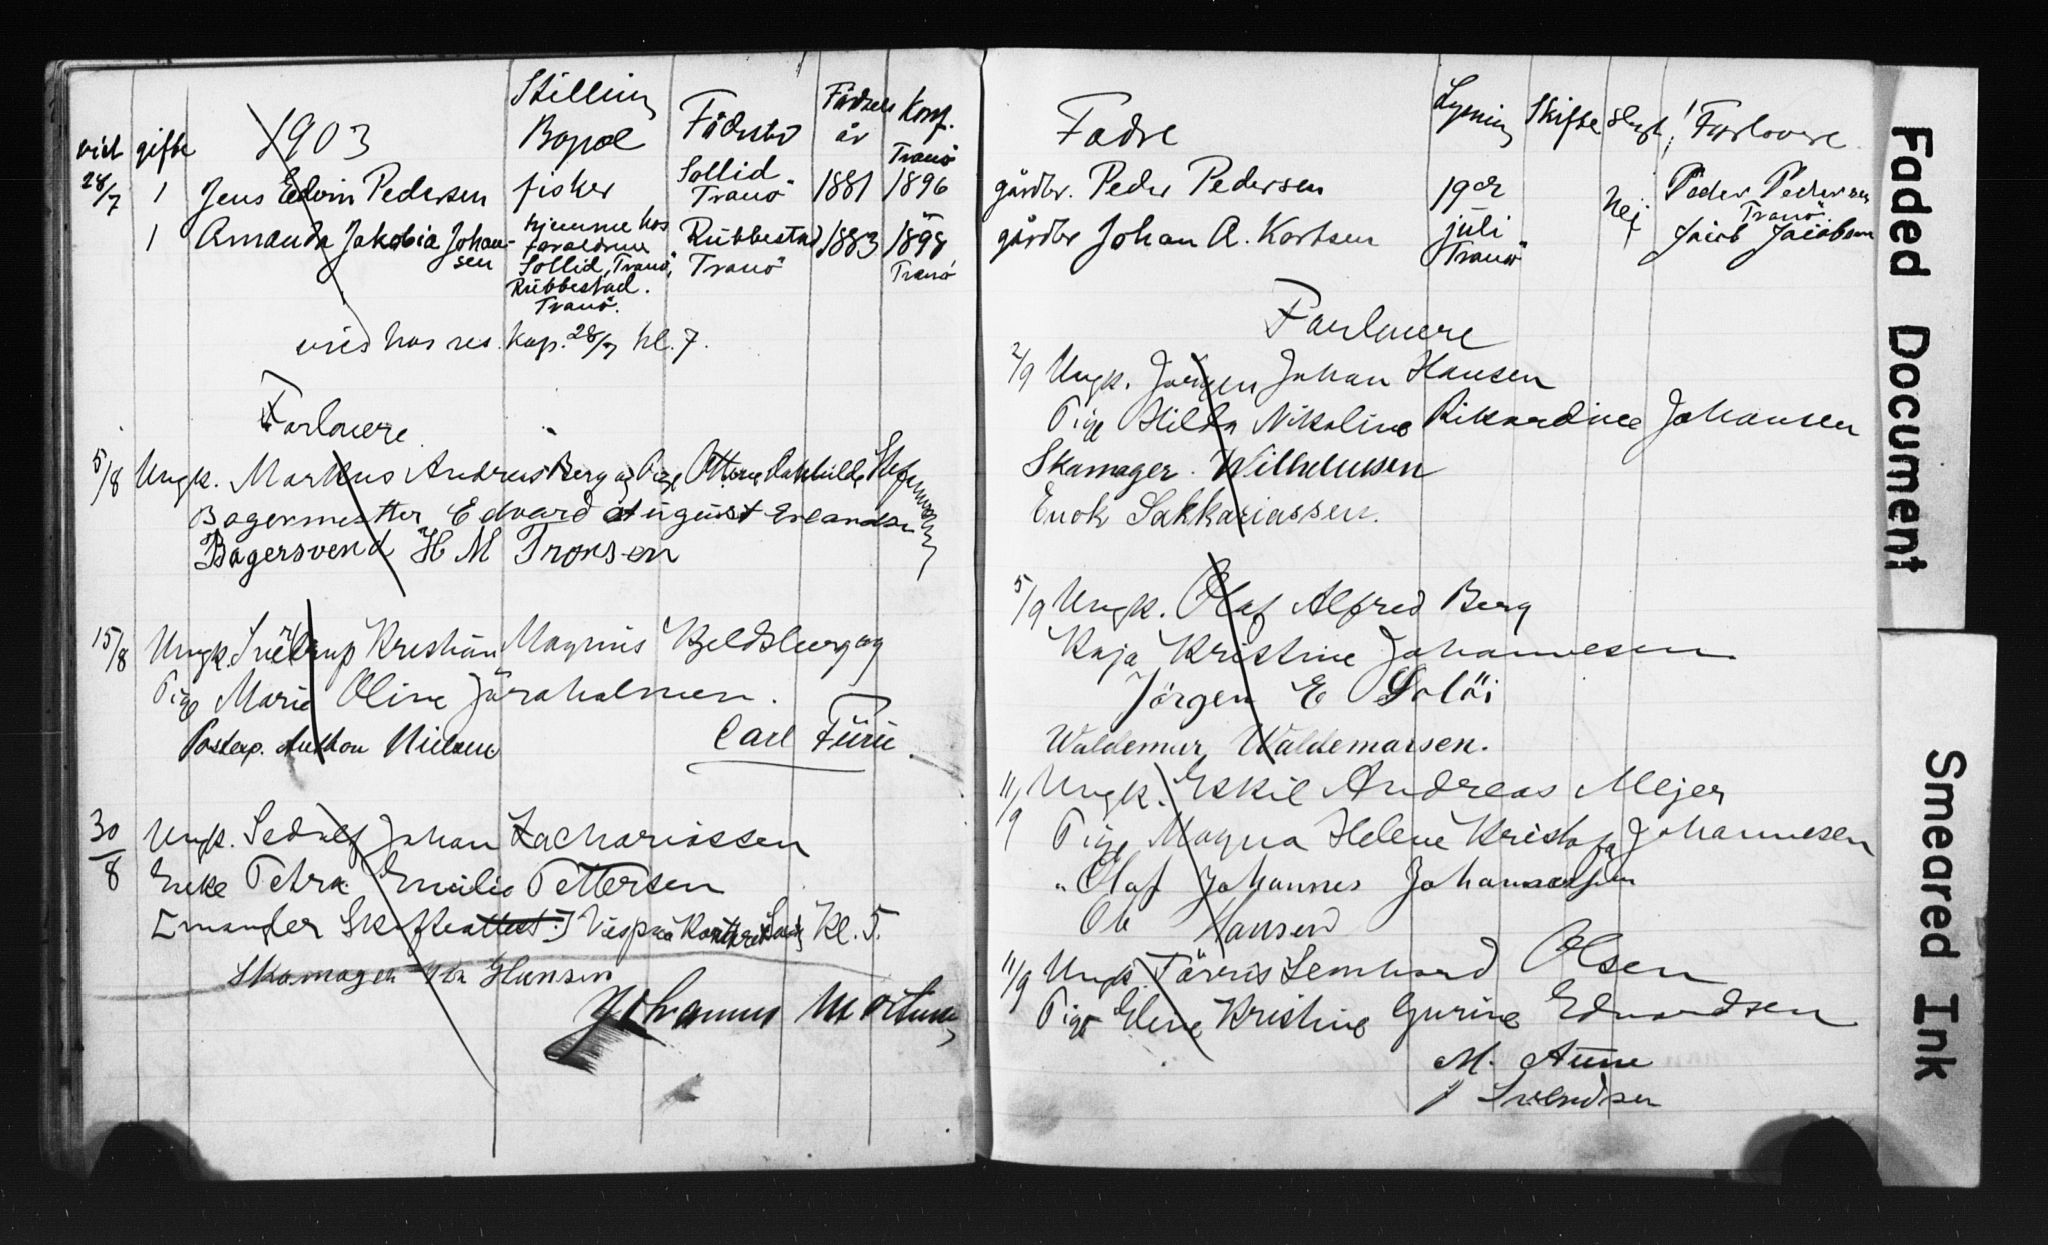 viet gifte 1903 Stilling Bopæl Födested Födsels år Konf.
28/7 1 Jens Edvin Pedersen fisker Sollid Tranö 1881 Tranö 1896
1 Amanda Jakobia Johansen hjemme hos foraldrene Rübbestad Tranö 1883 1898 Tranö
Sollid, Tranö,
Rübbestad.
Tranö.
vies hos res. kap. 28/7 kl. 7.
Forlovere
5/8 Ungk. Markus Andreas Berg og Pige
Bagermester Edvard August Erlandsen
Bagersvend H M Tronsen
15/8 Ungk. Kristian Magnus
Pige Marie Oline
Postexp. Anthon Nielsen Carl Fürü.
30/8 Ungk. Sedolf Johan Zachariassen
Enke Petra Emilie Pettersen
[mangler Skifteattest.] Vies paa Kl. 5.
Skomager Hansen
Johannes
Fadre Lysning Skifte Slegt Forlovere
gårdbr. Peder Pedersen 19de Nej Peder Pedersen Tranö
gårdbr Johan A. Kortsen juli Tranö Jacob Jacobsen
Forlovere
2/9 Ungk. Jørgen Johan Hansen
Pige Hilda Nikoline Rikardine Johansen
Skomager. Wilhelmsen
Enok Sakkariassen.
5/9 Ungk. Olaf Alfred Berg
Kaja Kristine Johannesen
Jörgen E Solöi
Waldemar Waldemarsen.
11/9 Ungk. Eskil Andreas Mejer
Pige Magna Helene Kristofa Johannesen
" Olaf Johannes
Ole Hansen
11/9 Ungk. Törris Lenhard Olsen
Pige Eline Kristine Gurine Edvardsen
M. Aune
J Svendsen
Faded Document
Smeared Ink